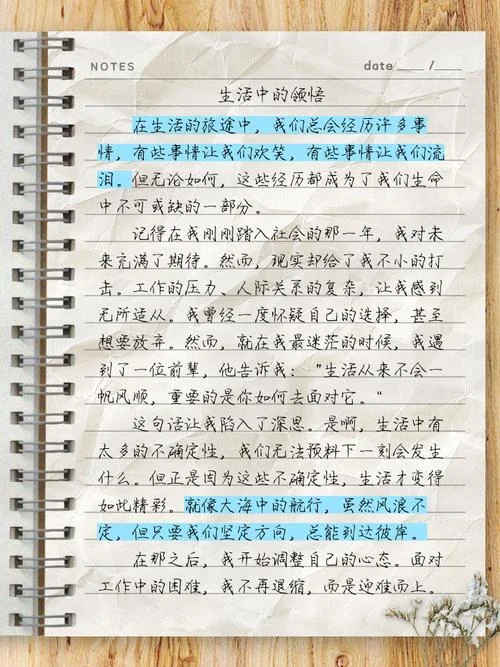 NOTES
date____/___
生活中的领悟
在生活的旅途中，我们总会经历许多事
情，有些事情让我们欢笑，有些事情让我们流
泪。但无论如何，这些经历都成为了我们生命
中不可或缺的一部分。
记得在我刚刚踏入社会的那一年，我对未
来充满了期待。然而，现实却给了我不小的打
击。工作的压力、人际关系的复杂，让我感到
无所适从。我曾经一度怀疑自己的选择，甚至
想要放弃。然而，就在我最迷茫的时候，我遇
到了一位前辈，他告诉我："生活从来不会一
帆风顺，重要的是你如何去面对它。"
这句话让我陷入了深思。是啊，生活中有
太多的不确定性，我们无法预料下一刻会发生
什么。但正是因为这些不确定性，生活才变得
如此精彩。就像大海中的航行，虽然风浪不
定，但只要我们坚定方向，总能到达彼岸。
在那之后，我开始调整自己的心态。面对
工作中的困难，我不再退缩，而是迎难而上。